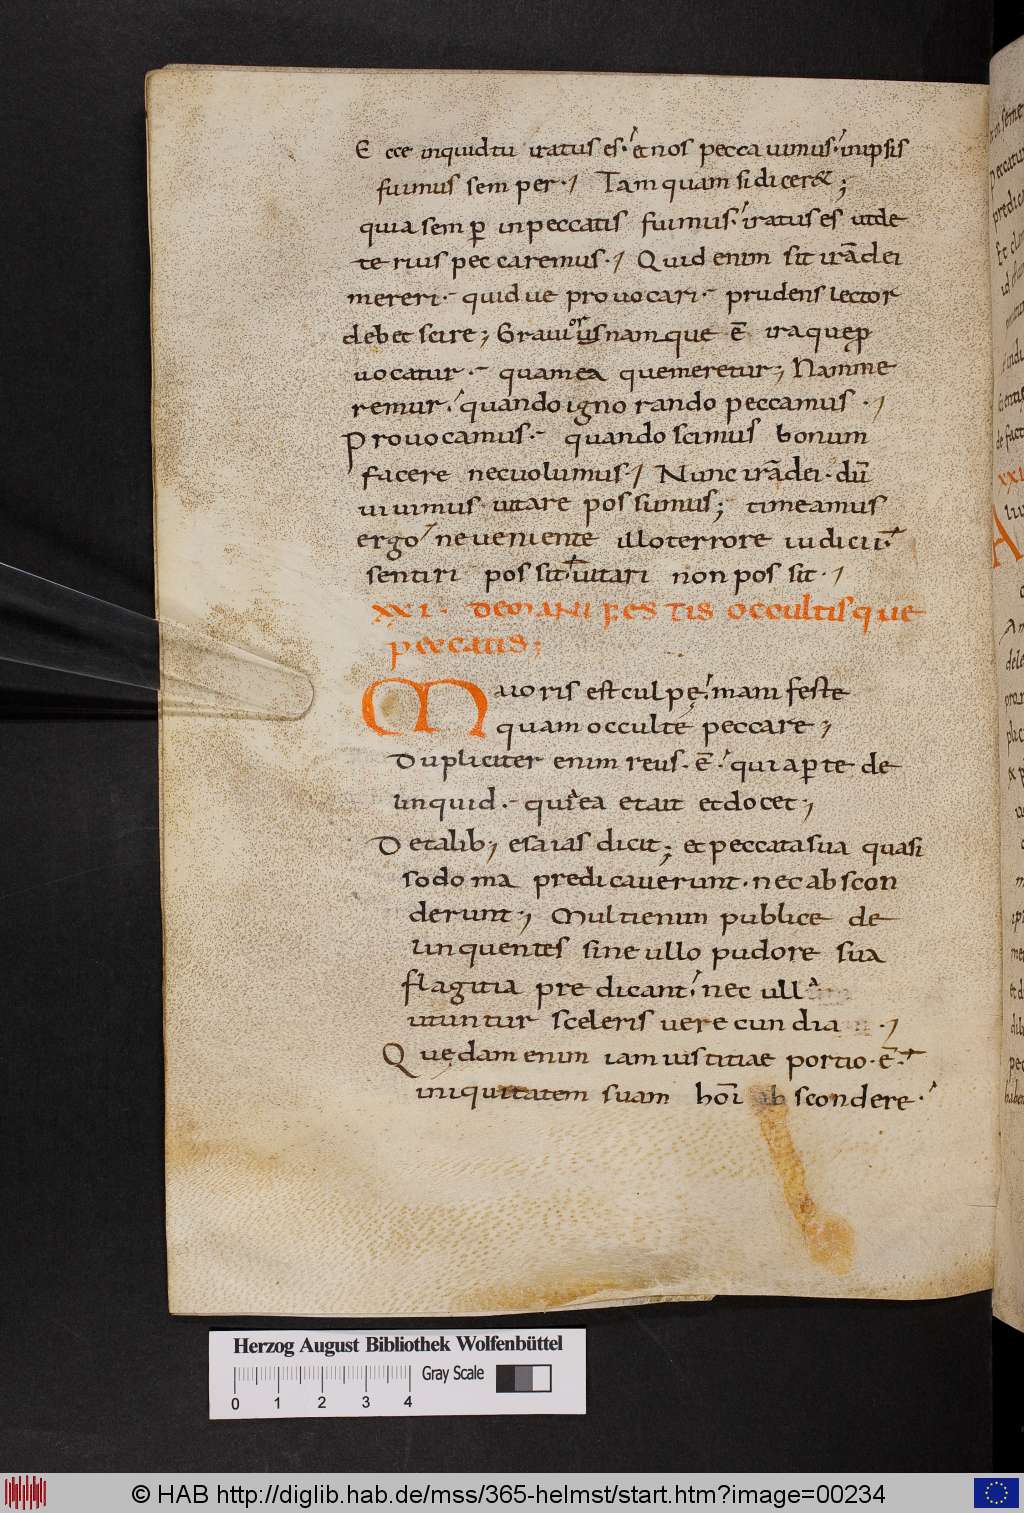 Ecce inquid tu iratus es· et nos peccauimus· in ipsis
fuimus semper·, Tam quam si dicer&;
quia semp̄ in peccatis fuimus· iratus es ut de
terius peccaremus·, Quid enim sit irā dei
mereri·- quid ue prouocari·- prudens lector
debet scire; Grauiorus namque ē ira que p̄
uocatur·- quam ea que meretur; Nam me
remur· quando ignorando peccamus·,
Prouocamus·- quando scimus bonum
facere nec uolumus·, Nunc irā dei· dū
uiuimus uitare possumus; timeamus
ergo ne ueniente illo terrore iudicii·
sentiri possit· uitari non possit·,
XXI· DE MANIFESTIS occultisque
peccatis;
Maioris est culpę· manifeste
quam occulte peccare;
Dupliciter enim reus· ē· qui aperte de
linquid·- quia ea et ait et docet;
De talib; esaias dicit; et peccata sua quasi
sodoma predicauerunt· nec abscon
derunt·, Multi enim publice de
linquentes sine ullo pudore sua
flagitia predicant· nec ulla
utuntur sceleris uerecundia·,
Quędam enim iam iustitiae portio· ē·
iniquitatem suam homī abscondere·
Herzog August Bibliothek Wolfenbüttel
Gray Scale
0 1 2 3 4
© HAB http://diglib.hab.de/mss/365-helmst/start.htm?image=00234